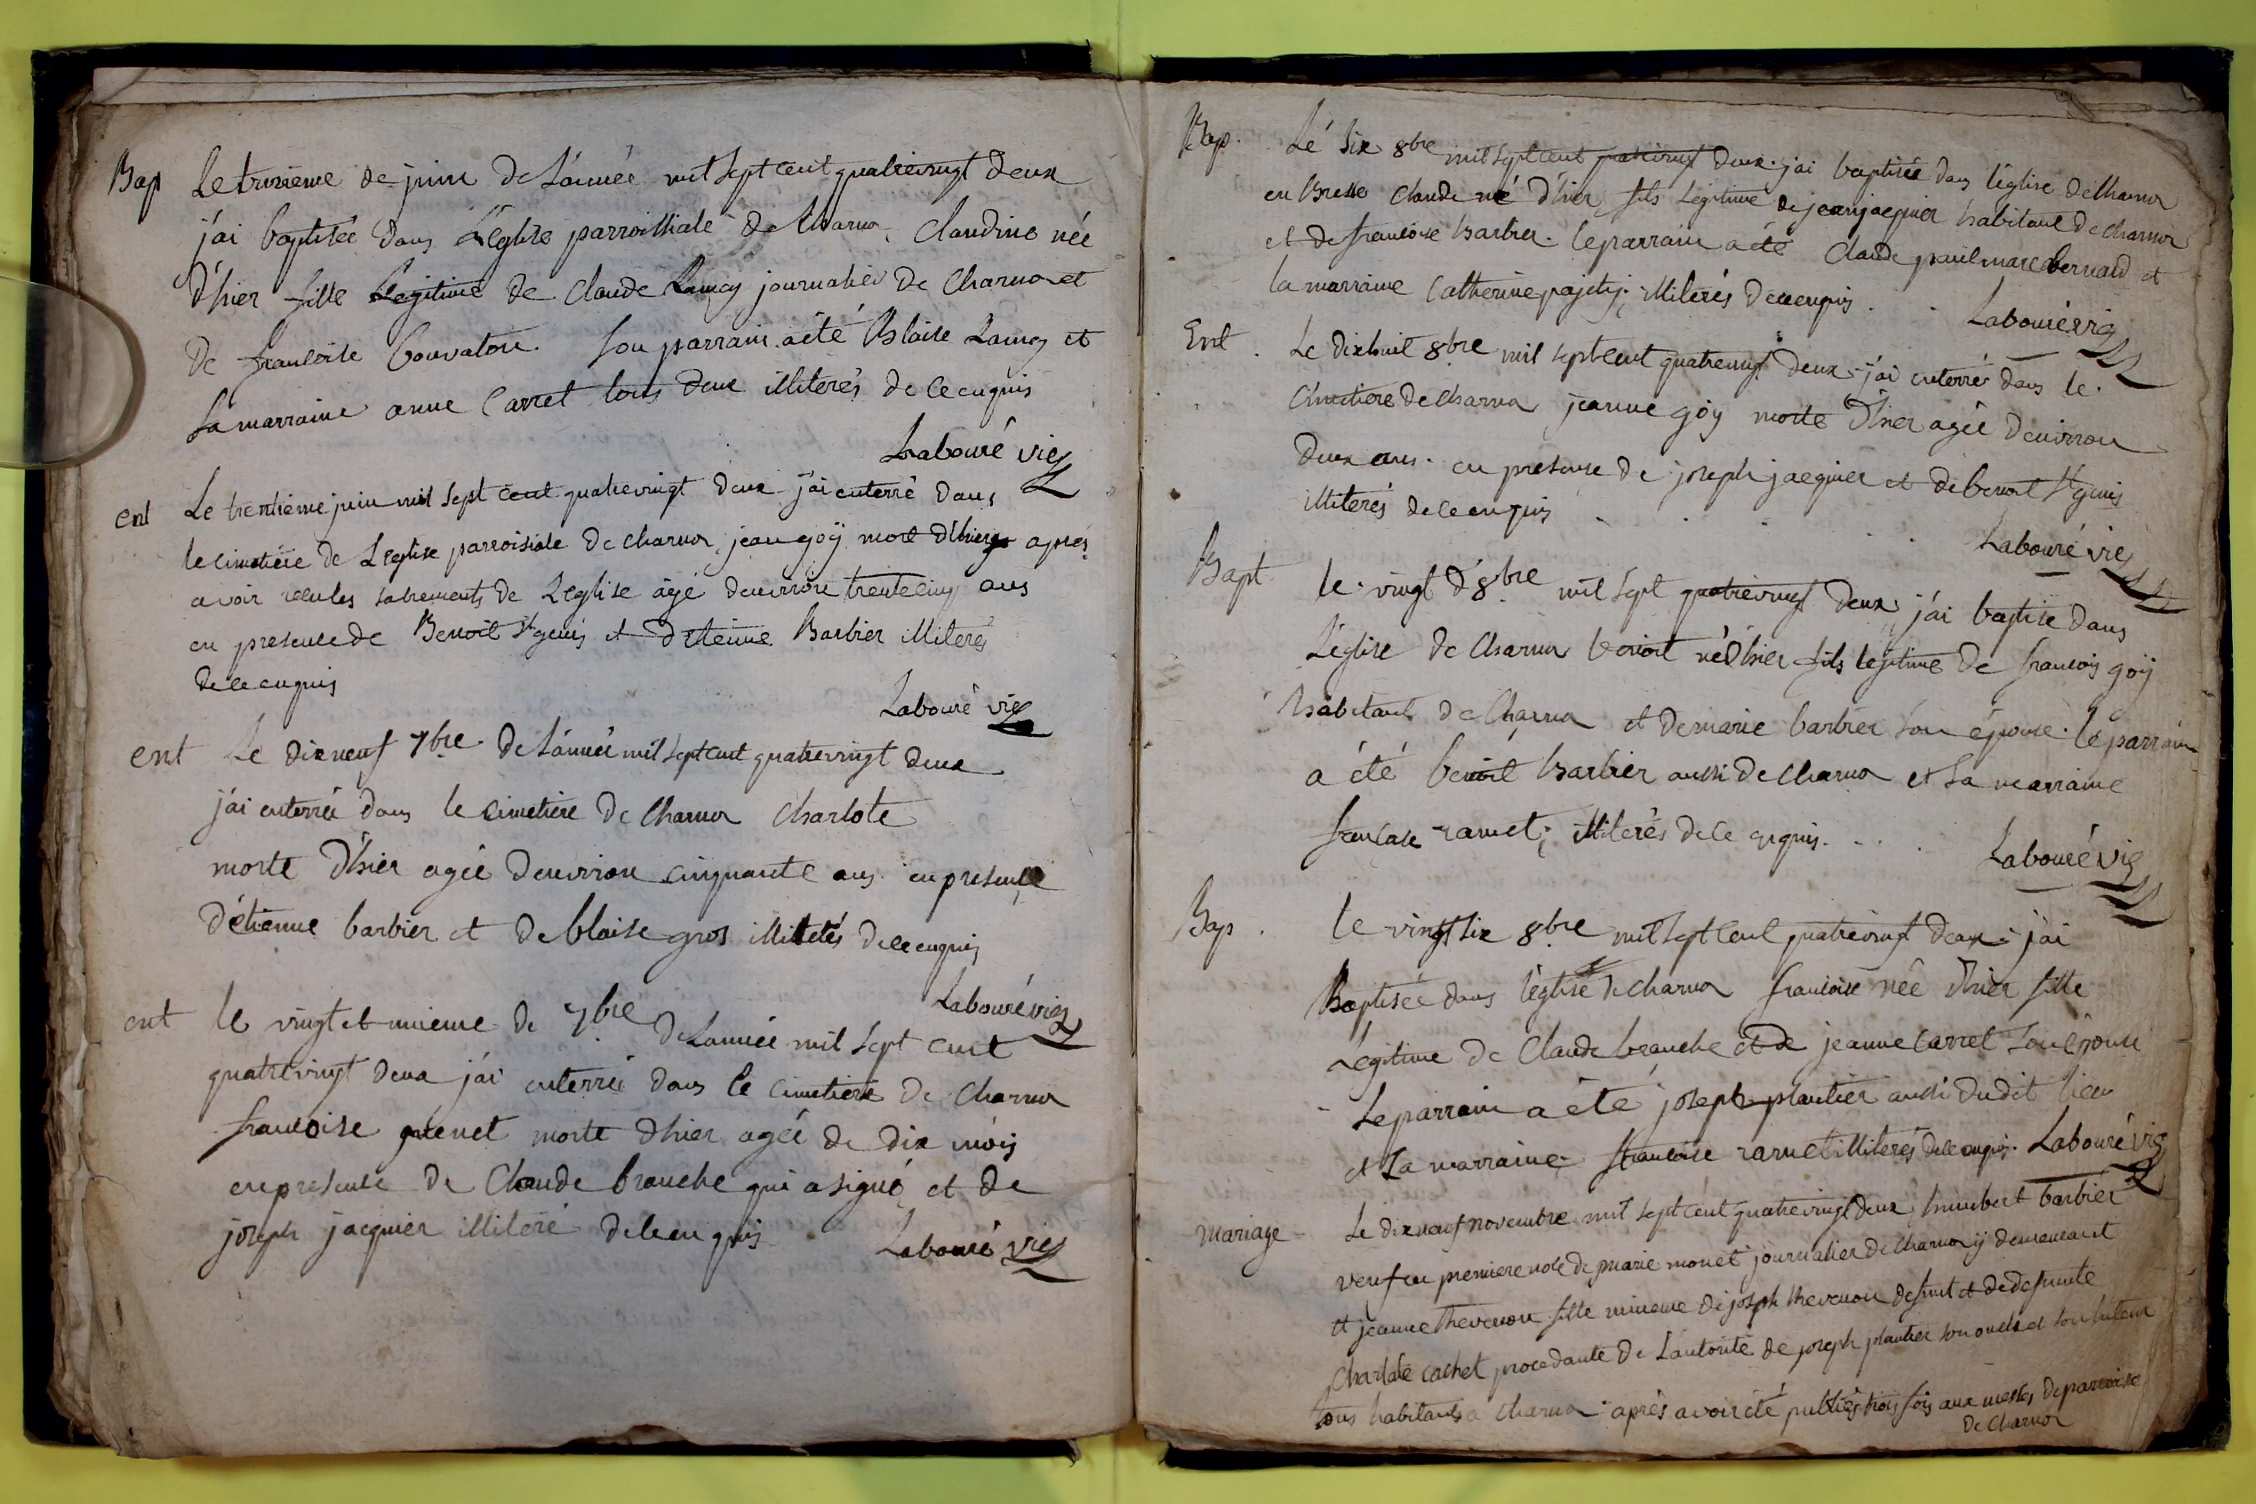 Bap Le troisieme de juin de L'année mil sept cent quatrevingt deux
j'ai baptisée dans L'église parroissiale de Charnoz, Claudine née
d'hier fille Legitime de Claude Lancy journalier de Charnoz et
de francoise bouvatou. Son parrain a été Blaise Lancy et
sa marraine anne Carret tous deux illiterés de ce enquis
Labouré vic
ent Le trentieme juin mil sept cent quatrevingt deux j'ai enterré dans
le cimetière de L'eglise parroisiale de charnoz jean goÿ mort d'hier apres
avoir recu les sacrements de L'eglise âgé denviron trentecinq ans
en presence de Benoit St genis et d'etienne Barbier illiterés
de ce enquis
Labouré vic
ent Le dixneuf 7bre de L'année mil sept cent quatrevingt deux
j'ai enterrée dans le cimetiere de Charnoz Charlote
morte d'hier agée denviron cinquante ans en presence
d'étienne barbier et de blaise gros illiterés de ce enquis
Labouré vic
ent le vingt et unieme de 7bre de Lannée mil sept cent
quatrevingt deux j'ai enterrée dans le cimetiere de Charnoz
francoise grenet morte d'hier agée de dix mois
en presence de Claude branche qui a signé et de
joseph jacquier illiteré de ce en quis
Labouré vic
Bap. Lé six 8bre mil sept cent quatrevingt deux j'ai baptisée dans l'église de Charnoz
en Bresse Claude né d'hier fils Légitime de jean jacquier habitant de charnoz
et de francoise barbier. le parrain a été Claude paul marc bernard et
la marraine Catherine ; illiterés de ce enquis .
Labouré vic
Ent . Le dixhuit 8bre mil sept cent quatrevingt deux j'ai enterrée dans le
Cimetiere de Charnoz jeanne goÿ morte d'hier agée denviron
deux ans. en presence de joseph jacquier et de benoit St genis
illiterés de ce en quis
Labouré vic
Bapt le vingt d'8bre mil sept quatrevingt deux, j'ai baptisé dans
L'église de Charnoz benoit né d'hier fils legitime de francois goÿ
habitant de Charnoz et de marie barbier son épouse. lé parrain
a été benoit barbier aussi de Charnoz et La marraine
francoise ramet ; illiterés de ce enquis. . . .
Labouré vic
Bap . le vingt six 8bre mil sept cent quatrevingt deux ; j'ai
Baptisée dans l'église de charnoz francoise née d'hier fille
Légitime de Claude branche et de jeanne carret son épouse
Le parrain a été joseph plantier aussi dudit lieu
et La marraine francoise ramet illiterés de ce enquis. Labouré vic
Mariage Le dix neuf novembre mil sept cent quatrevingt deux humbert barbier
veuf en premiere noce de marie monet journalier de Charnoz ÿ demeurant
et jeanne thevenon fille mineure de joseph thevenon defunt et de defunte
Charlote cachet procedante de L'autorité de joseph plantier son oncle et son tuteur
tous habitants a charnoz : après avoir été publiés trois fois aux messes de parroisse
de charnoz